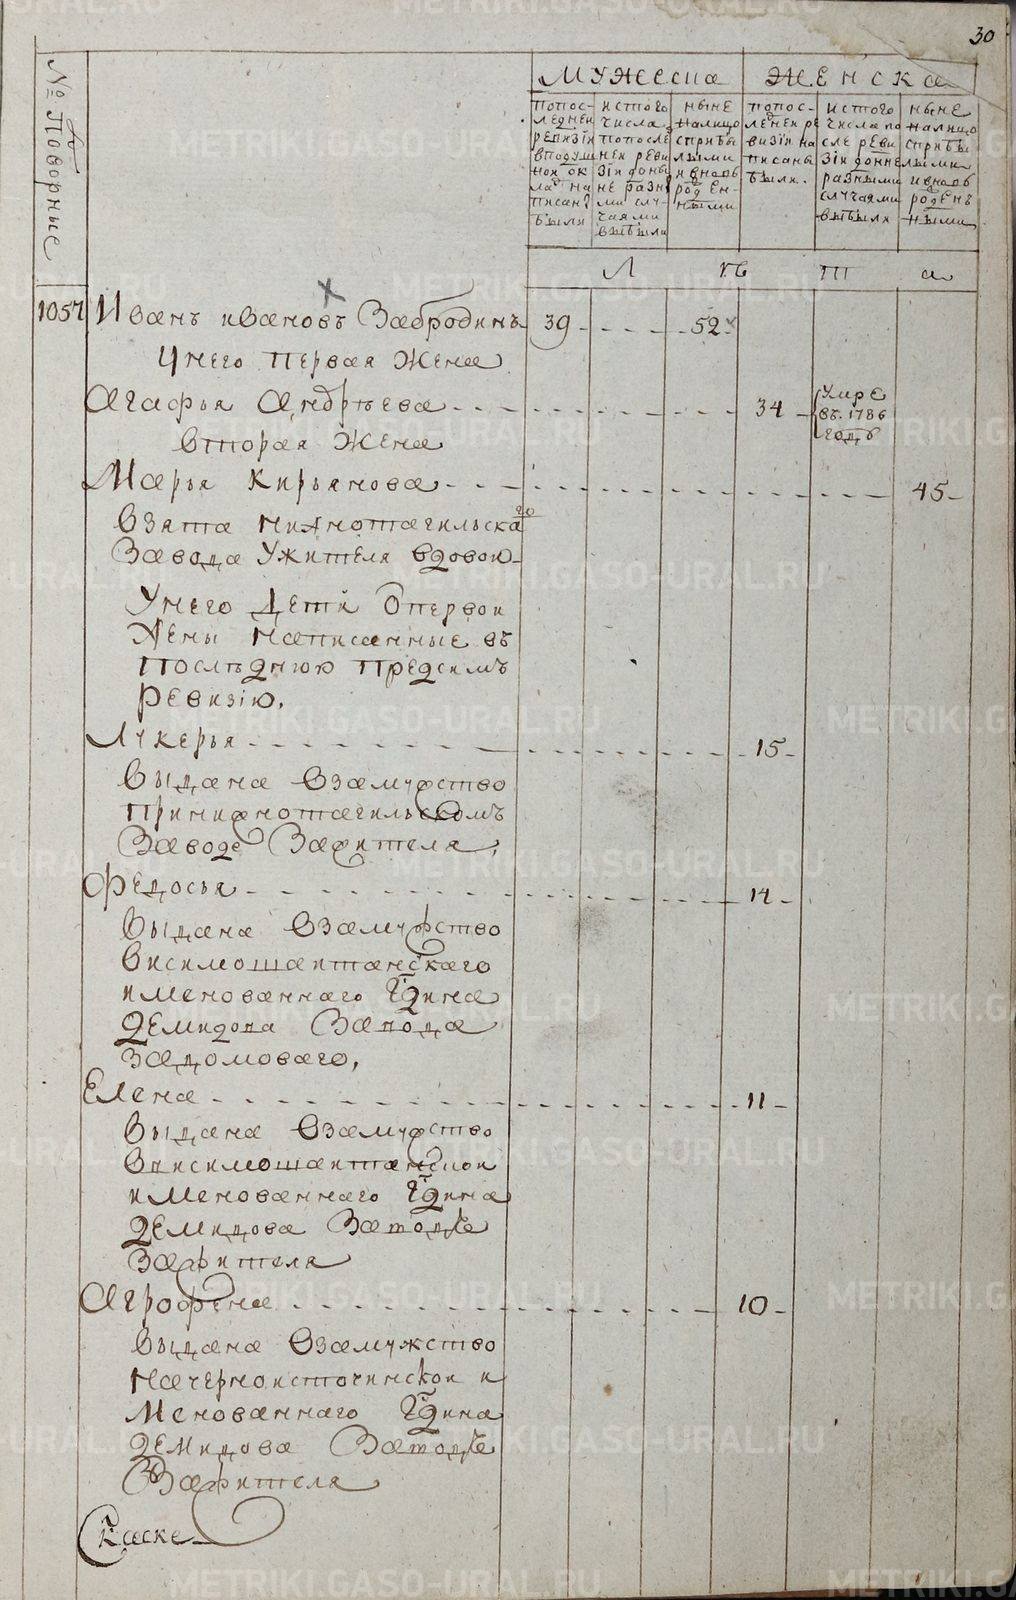 30
№ Поворные
Мужеска
Женска
Попос-
леднеи
ревизiи
вподуш
нои ок
лад на
писан?
были
истого
числа
попосле
неи реви
зiи доны
не разн
ми слу-
чаями
выбыли
ныне
налицо
сприбы
лыми
ивновь
рожден-
ными
попос-
леднеи ре
визiи на
писаны
были.
истого
числа по
сле реви
зiи донне
разными
случаями
выбыли
ныне
налицо
сприбы
лыми
ивновь
рожденъ
ными
Л ѣ т а
1057
Иванъ ивановъ Забродинъ 39 52
Унего первая жена
Агафья Андрѣева 34 Умре
въ 1786
годѣ
вторая жена
Марья Кирьянова 45
взята нижнотагильскаго
завода Ужителя вдовою
Унего дети отпервои
жены написанные въ
последнюю предсимъ
ревизiю.
Лукерья 15
выдана взамужство
принижнотагильскомъ
заводе зажителя
Федосья 14
выдана взамужство
висимошаитанскаго
именованнаго Гдина
демидова завода
задомоваго,
Елена 11
выдана взамужство
ввисимошаитанскои
именованнаго Гдина
демидова заводъ
зажителя
Агрофена 10
выдана взамужство
начерноисточинскои и
менованнаго Гдина
демидова заводъ
зажителя
Скаске
METRIKI.GASO-URAL.RU